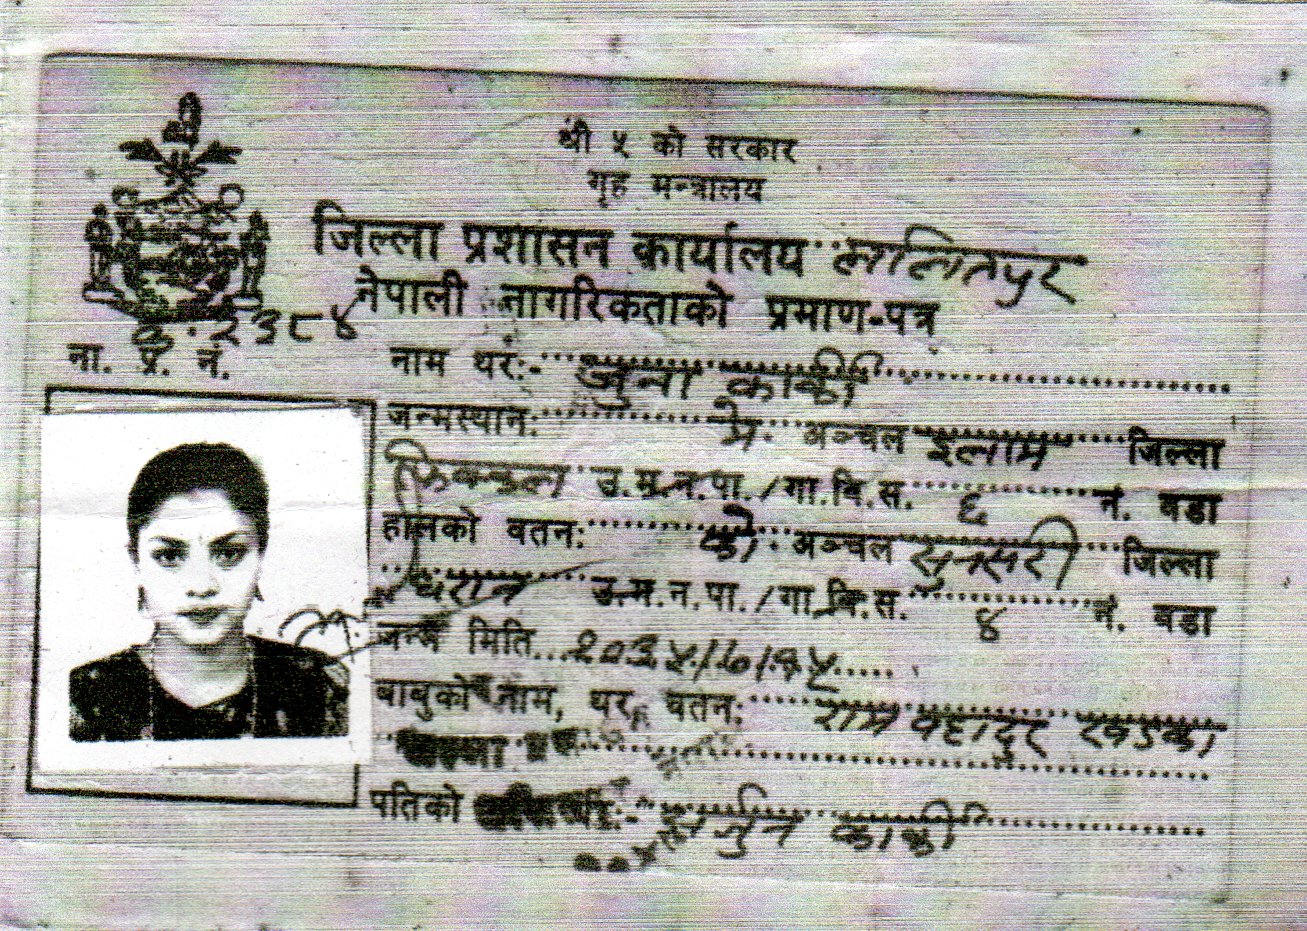 श्री ५ को सरकार
गृह मन्त्रालय
जिल्ला प्रशासन कार्यालय ललितपुर
नेपाली नागरिकताको प्रमाण-पत्र
२३८४
ना. प्र. नं.
नाम थर:- जुना कार्की
जन्मस्थान: मे. अञ्चल इलाम जिल्ला
फिक्कल उ.म.न.पा./गा.वि.स. ६ नं. वडा
हालको वतन: को. अञ्चल सुनसरी जिल्ला
धरान उ.म.न.पा./गा.वि.स. ४ नं. वडा
जन्म मिति
बाबुको नाम, थर, वतन: राम बहादुर खड्का
पतिको अर्जुन कार्की